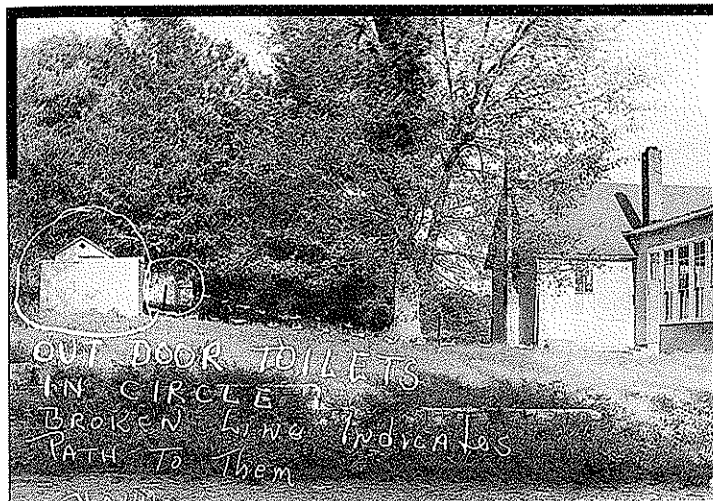 OUT DOOR TOILETS
IN CIRCLE
BROKEN Line Indicates
PATH To Them